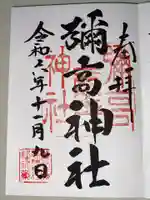 奉拝
彌高神社
令和二年十一月九日